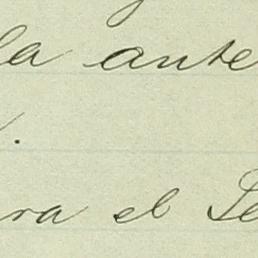 la ante
.
ra el Se